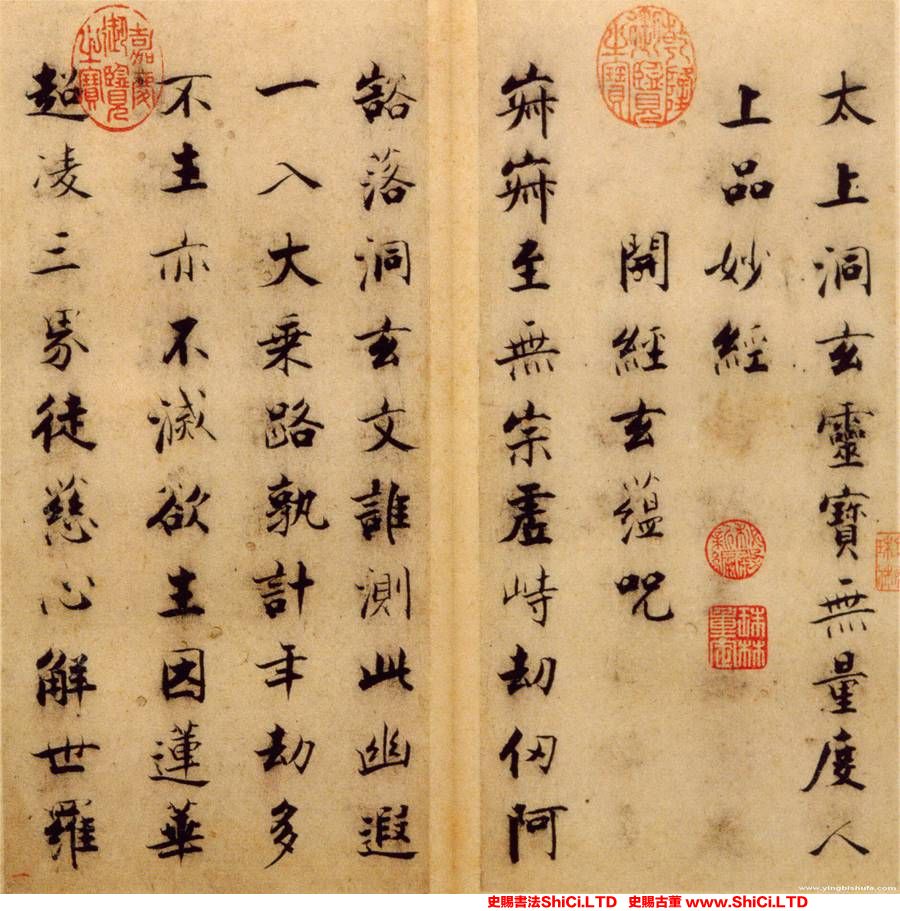 太上洞玄靈寶無量度人
上品妙經
開經玄蘊呪
寂寂至無宗虛峙劫仞阿
豁落洞玄文誰測此幽遐
一入大乘路孰計年劫多
不生亦不滅欲生因蓮華
超凌三界徒慈心解世羅
乾隆御覽之寶
嘉慶御覽之寶
www.yingbishufa.com
史賜書法ShiCi.LTD 史賜古董 www.ShiCi.LTD